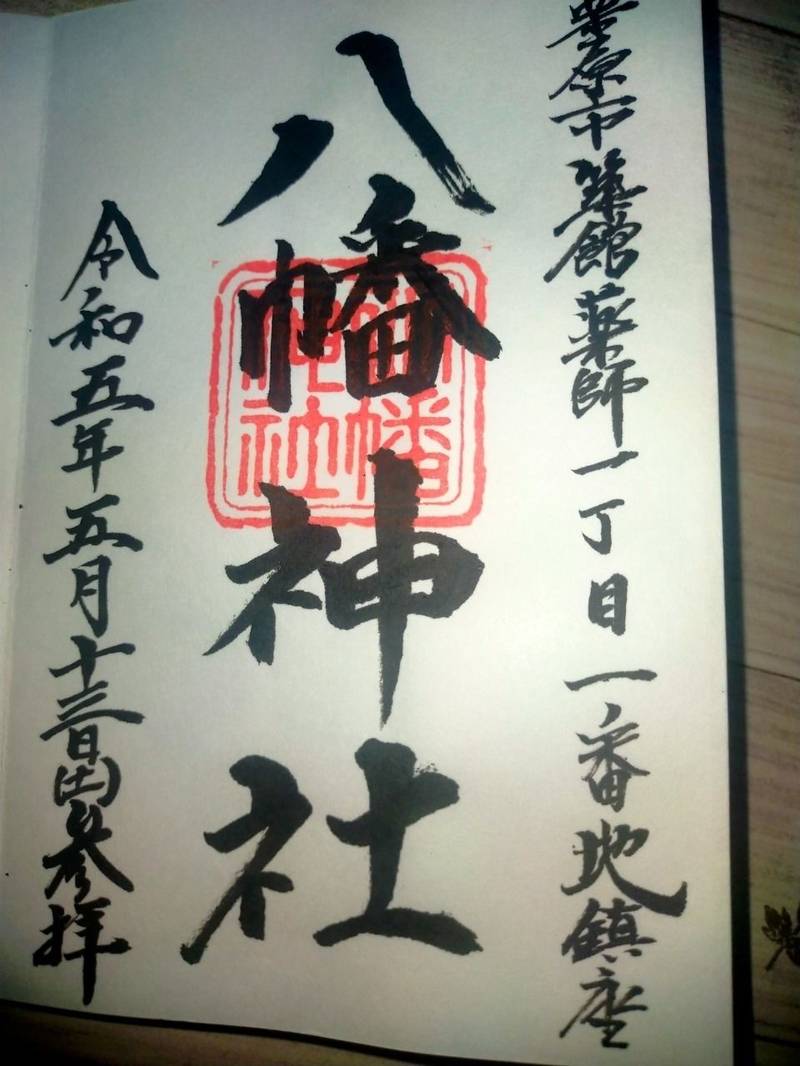 栗原市築館薬師一丁目一番地鎮座
八幡神社
令和五年五月十三日(土)参拝
八幡
神社